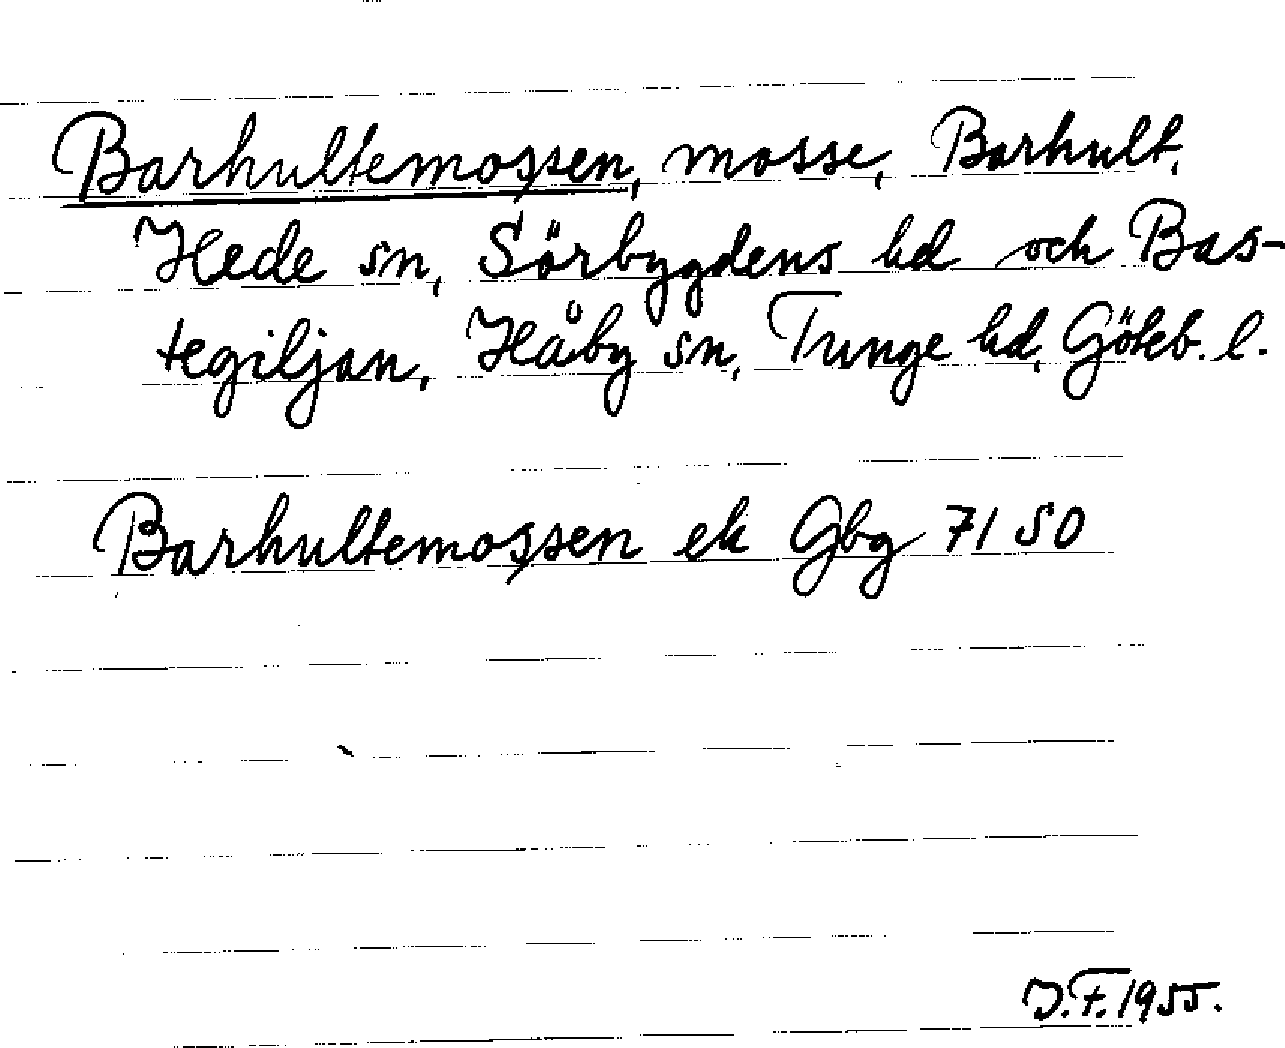 Barhultemossen, mosse, Barhult,
Hede sn, Sörbygdens hd och Bas-
tegiljan, Håby sn, Tunge hd, Göteb. l.
Barhultemossen ek Gbg 71 50
J.F. 1955.